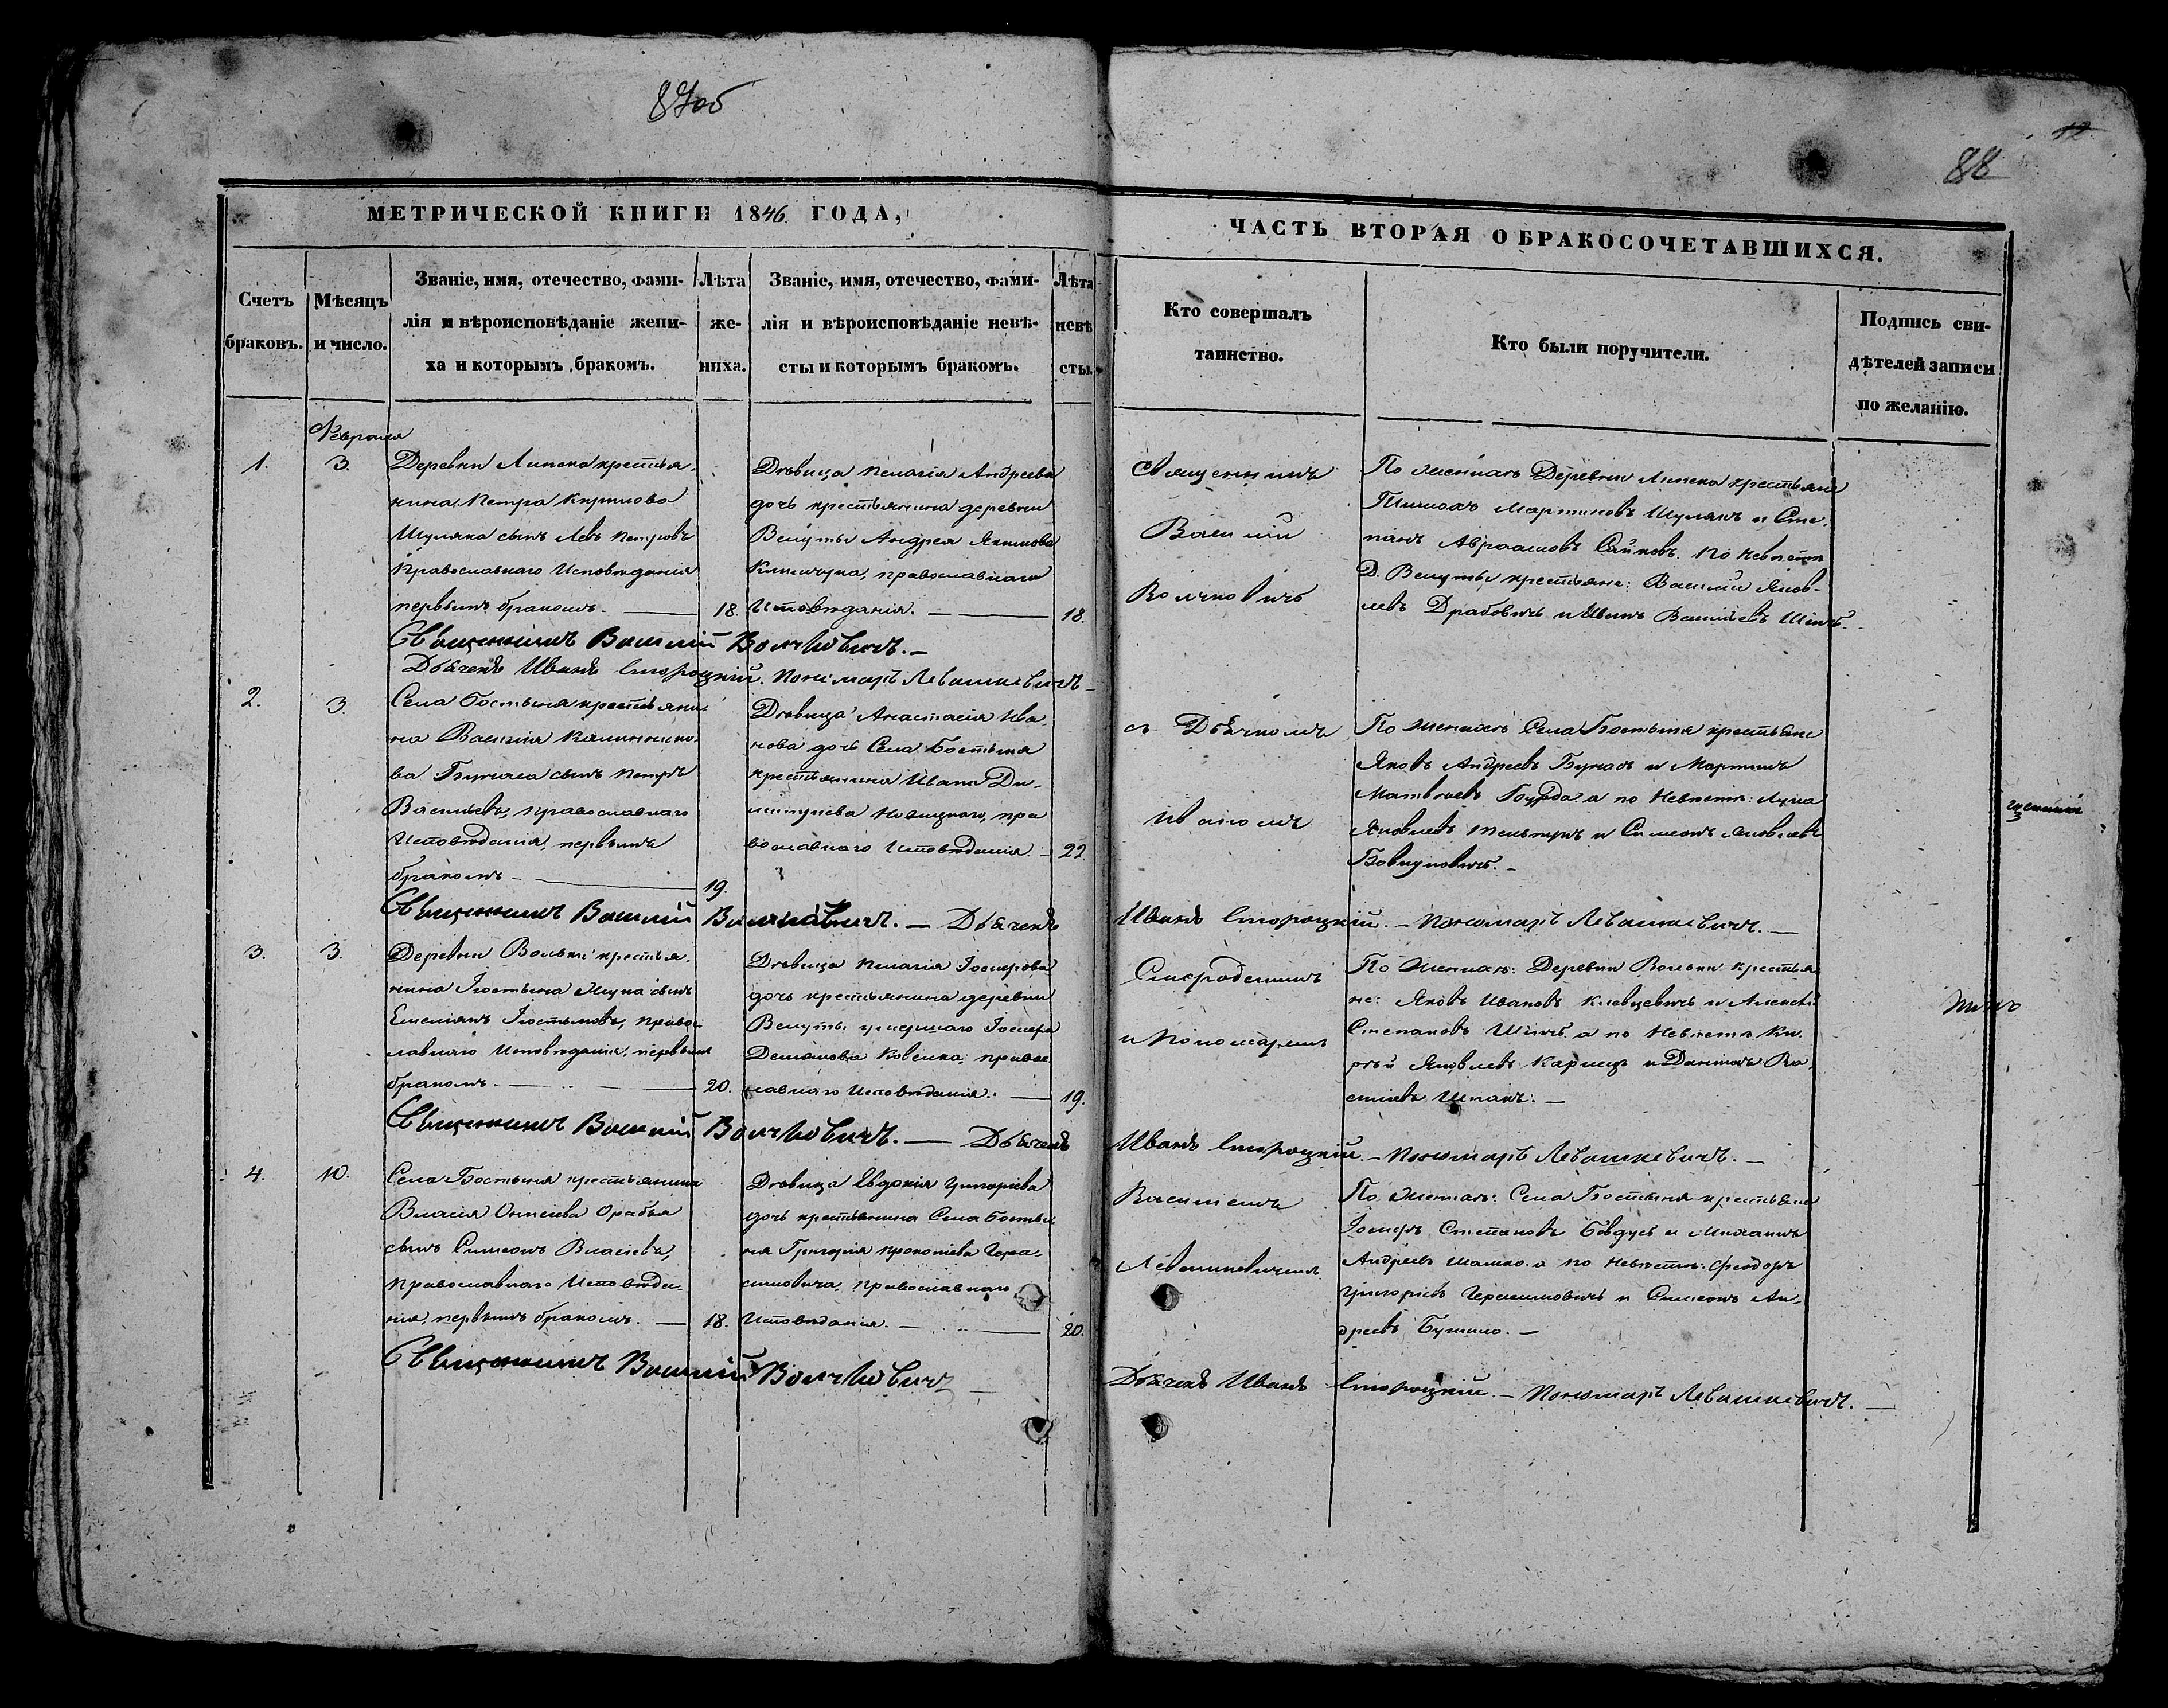 87об
12
88
МЕТРИЧЕСКОЙ КНИГИ 1846 ГОДА,
ЧАСТЬ ВТОРАЯ О БРАКОСОЧЕТАВШИХСЯ.
Счетъ браковъ.
Мѣсяцъ и число.
Званіе, имя, отечество, фами-
лія и вѣроисповѣданіе жени-
ха и которымъ бракомъ.
Лѣта
же-
ниха.
Званіе, имя, отечество, фами-
лія и вѣроисповѣданіе невѣ-
сты и которымъ бракомъ.
Лѣта
невѣ
сты.
Кто совершалъ
таинство.
Кто были поручители.
Подпись сви-
дѣтелей записи
по желанію.
Февраля
1.
3.
Деревни Липска крестья-
нина Петра Кирилова
Шуляка сынъ Левъ Петровъ
Православнаго Исповѣданія
первымъ бракомъ.
18.
Дѣвица Пелагія Андреева
дочь крестьянина деревни
Велуты Андрея Якимова
православнаго
Исповѣданія.
18.
Священникъ
Василій
Волчковичъ
По Женихѣ Деревни Липска крестьяне
Мартиновъ Шулякъ и Сте-
панъ Авраамовъ По Невѣстѣ
Д. Велуты крестьяне: Василій Яков-
левъ Драбовичъ и Иванъ Васильевъ
Священникъ Василій Волчковичъ.
Дьячекъ Иванъ Сторожкій. Пономарь Левашкевичъ
2.
3.
Села Бостыня крестьяни
на Василія Калиннико-
ва Бункаса сынъ Петръ
Васильевъ, православнаго
Исповѣданія, первымъ
бракомъ
19.
Дѣвица Анастасія Ива-
нова дочь Села Бостыня
крестьянина Ивана Ди-
митріева Новицкаго, пра
вославнаго Исповѣданія.
22
съ Дьячкомъ
Иваномъ
По Женихѣ Села Бостыня крестьяне
Яковъ Андреевъ и Мартинъ
Матвѣевъ Бурда. а по Невѣстѣ: Лука
Яковлевъ и Симеонъ Яковлевъ
Священникъ Василій Волчковичъ. Дьячекъ
Иванъ Сторожкій. Пономарь Левашкевичъ.
3.
3.
Деревни Вольки крестья-
нина Іюстина сынъ
Емеліянъ Іюстиновъ, правос
лавнаго Исповѣданія, первымъ
бракомъ.
20.
Дѣвица Пелагія Іосифова
дочь крестьянина деревни
Велуты умершаго Іосифа
Демянова православ
лавнаго Исповѣданія.
19.
и Пономаремъ
По Женихѣ: Деревни Вольки крестья
не: Яковъ Ивановъ и Алексѣй
Степановъ а по Невѣстѣ
Яковлевъ Карпецъ и Даніилъ Ва
силіевъ Шпакъ.
Священникъ Василій Волчковичъ. Дьячекъ
Иванъ Сторожкій. Пономарь Левашкевичъ.
4.
10.
Села Бостыня крестьянина
Власія
сынъ Симеонъ Власіевъ,
Православнаго Исповѣда-
нія, первымъ бракомъ.
18.
Дѣвица Евдокія Григоріева
дочь крестьянина Села Босты
ня Григорія Прокопіева Гера-
симовича, православнаго
Исповѣданія.
20.
Василіемъ
Левашкевичемъ
По Женихѣ: Села Бостыня крестьяне
Іосифъ Степановъ и Михаилъ
Андреевъ а по Невѣстѣ: Феодоръ
Григоріевъ Герасимовичъ и Симеонъ Ан-
дреевъ
Священникъ Василій Волчковичъ
Дьячекъ Иванъ Сторожкій. Пономарь Левашкевичъ.